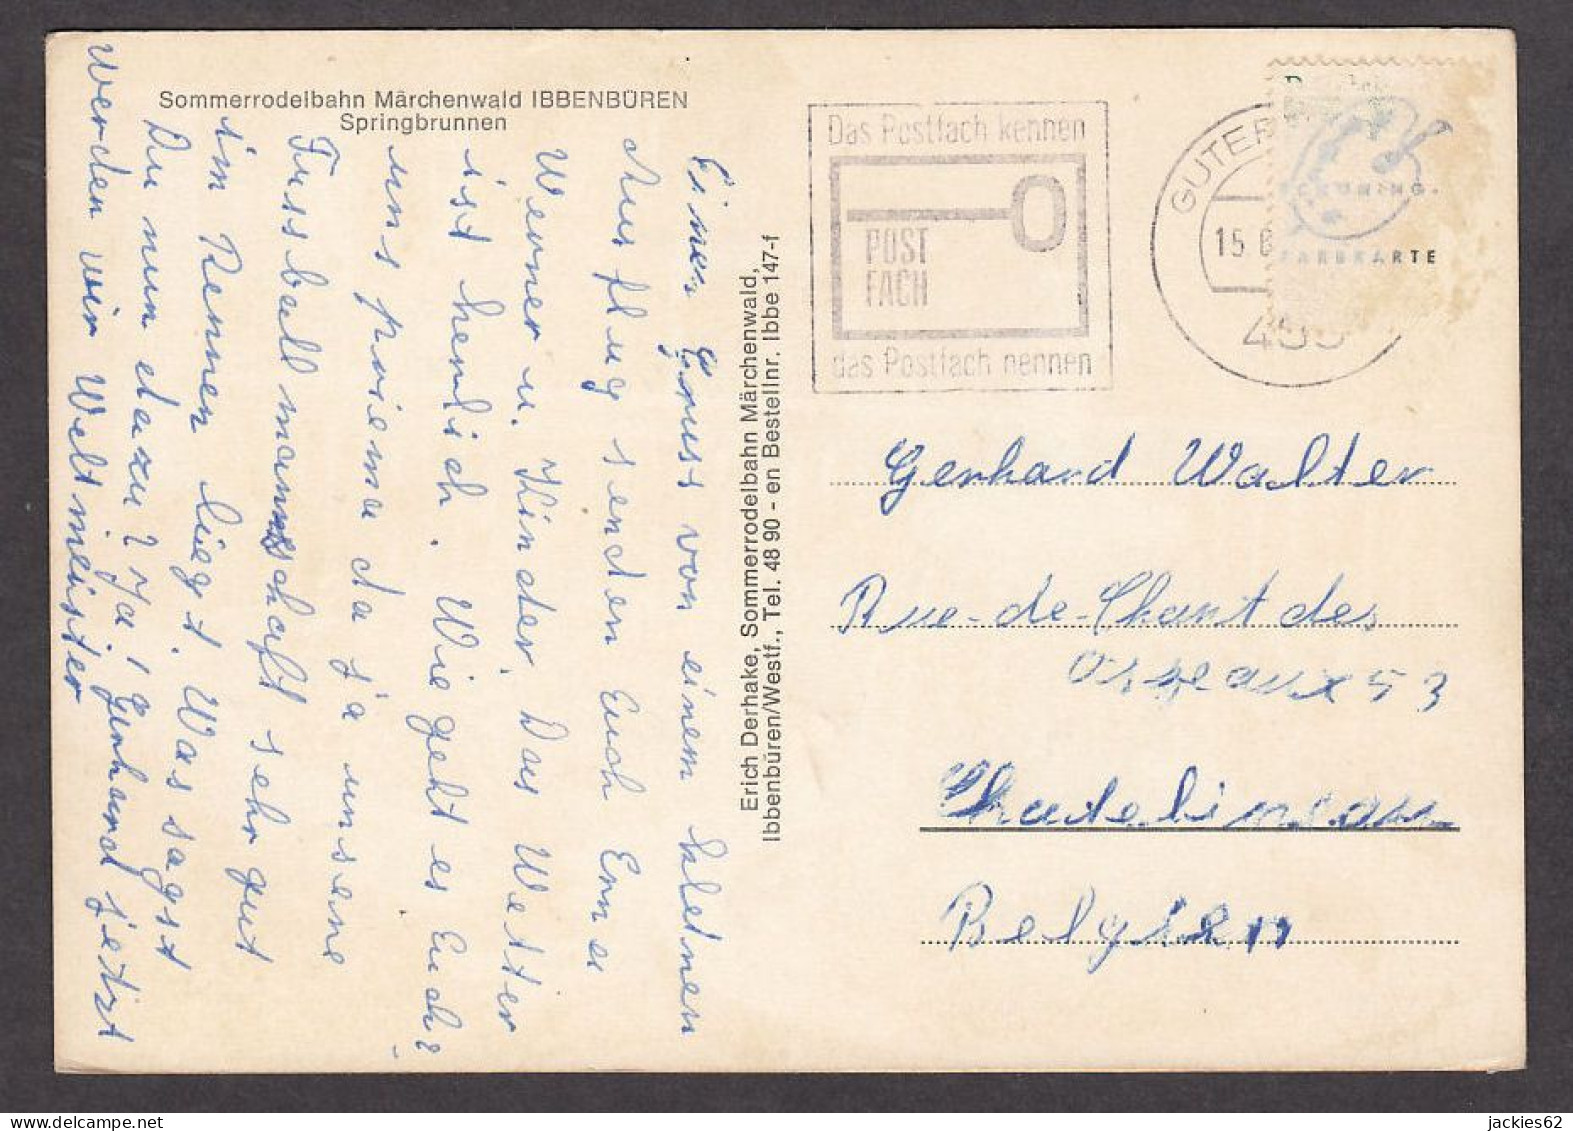 Sommerrodelbahn Märchenwald IBBENBÜREN
Springbrunnen
Einen Gruss von einem kleinen
Ausflug senden Euch Erna
Werner u. Kinder. Das Wetter
ist herrlich. Wie geht es Euch?
uns prima da ja unsere
Fussballmannschaft sehr gut
im Rennen liegt. Was sagst
Du nun dazu? Ja, Gerhard jetzt
werden wir Weltmeister
Erich Derhake, Sommerrodelbahn Märchenwald,
Ibbenbüren/Westf., Tel. 48 90 - en Bestellnr. Ibbe 147-f
Das Postfach kennen
POST
FACH
das Postfach nennen
GUTER
15.
SCHÜNING-
FARBKARTE
Gerhard Walter
Rue-de-Chant des
Oiseaux 53
Chatelineau
Belgien
jackies62